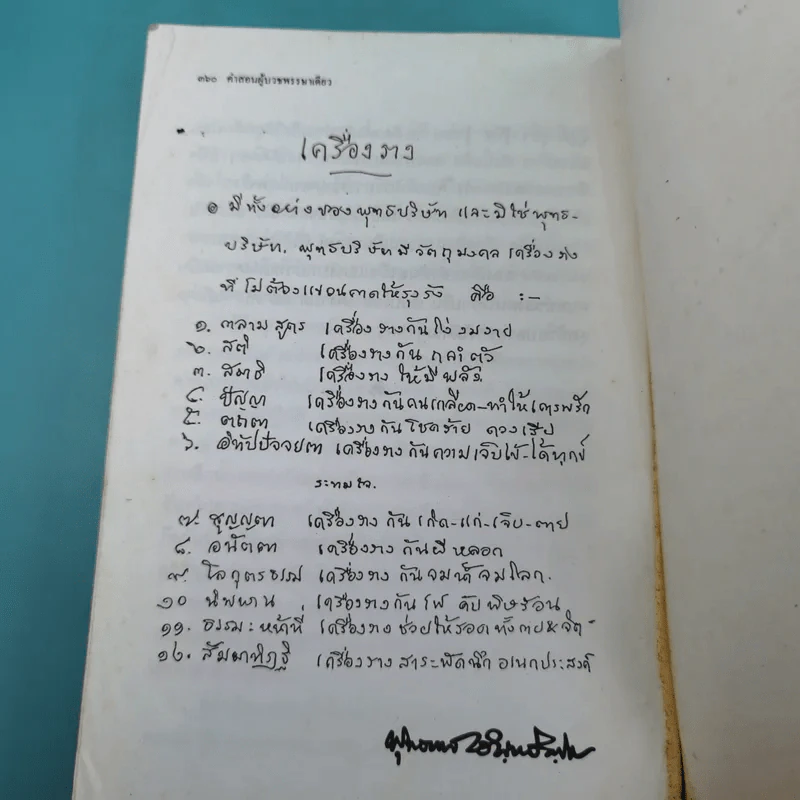 ๓๖๐ คำสอนผู้บวชพรรษาเดียว
เครื่องราง
๏ มีทั้งอย่างของพุทธบริษัท และมิใช่พุทธ-
บริษัท. พุทธบริษัทมีวัตถุมงคล เครื่องราง
ที่ไม่ต้องแขวนคาดให้รุงรัง คือ :-
๑. กลามสูตร เครื่องรางกันโง่งมงาย
๒. สติ เครื่องรางกัน ตัว
๓. สมาธิ เครื่องรางให้มีพลัง.
๔. ปัญญา เครื่องรางกันคนเกลียด-ทำให้เคารพรัก
๕. เครื่องรางกันโชคร้าย ดวงเสีย
๖. อิทัปปัจจยตา เครื่องรางกันความเจ็บไข้-ได้ทุกข์
ระทมใจ.
๗. สุญญตา เครื่องรางกัน เกิด-แก่-เจ็บ-ตาย
๘. อนัตตา เครื่องรางกันผีหลอก
๙. โลกุตรธรรม เครื่องรางกันจมน้ำจมโลก.
๑๐ นิพพาน เครื่องรางกันไฟ ดับพิษร้อน
๑๑. ธรรมะ:หน้าที่ เครื่องรางช่วยให้รอดทั้งกาย&จิต
๑๒. สัมมาทิฏฐิ เครื่องรางสาระพัดนึก อเนกประสงค์
พุทธทาส อินฺทปญฺโญ